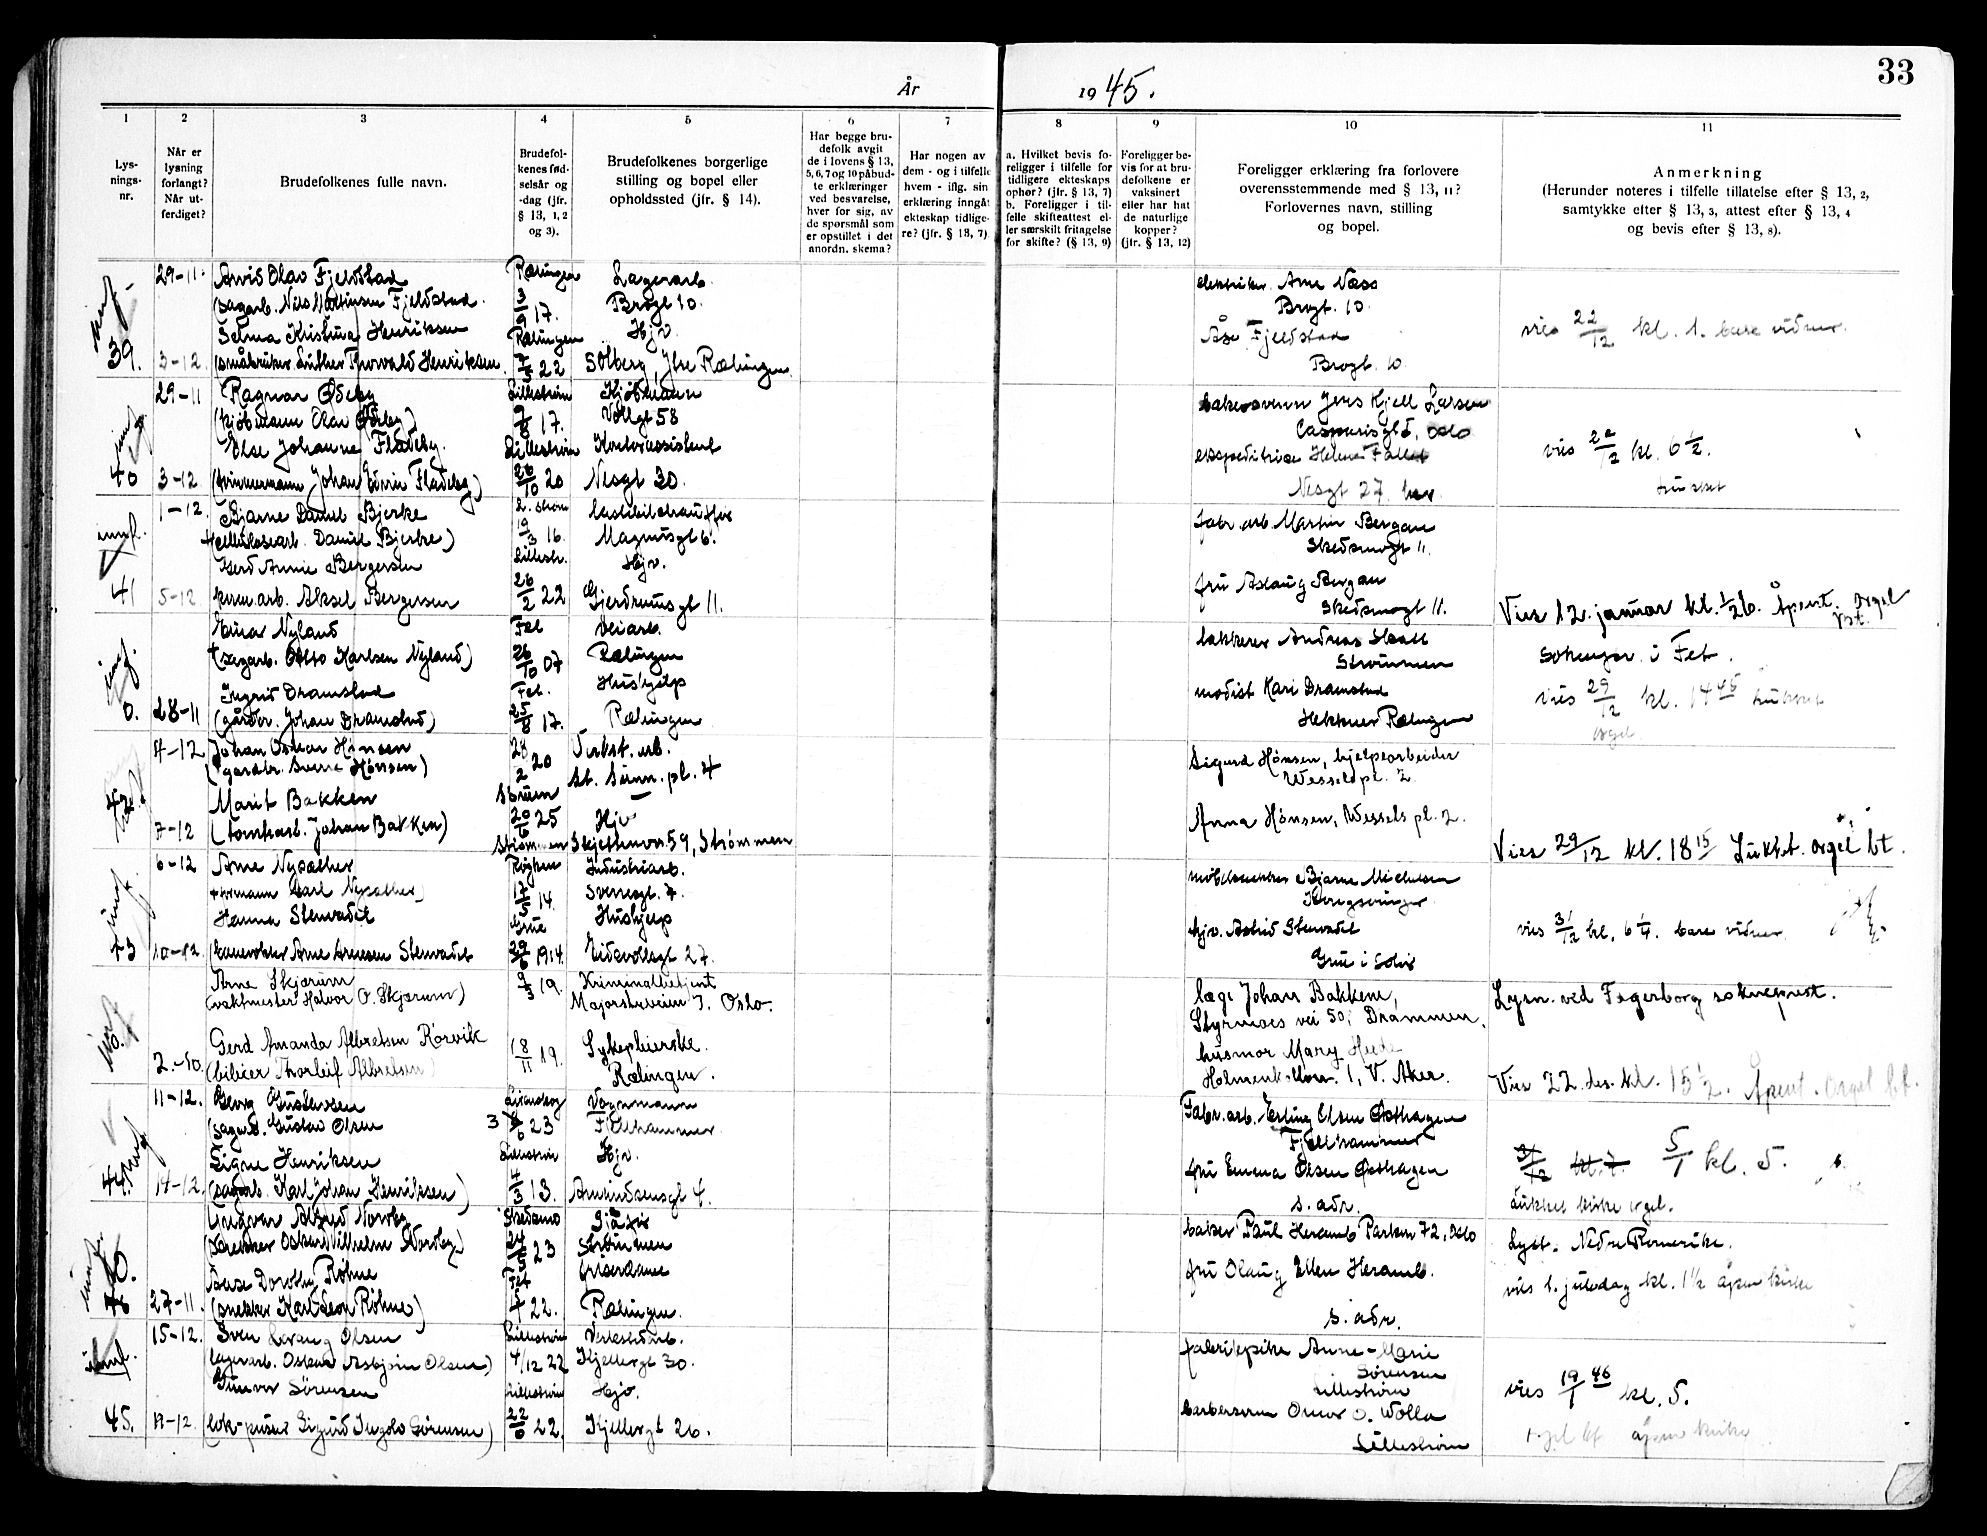 33
År 1945.
1 2 3 4 5 6 7 8 9 10 11
Lysningsnr.
Når er lysning forlangt? Når utferdiget?
Brudefolkenes fulle navn.
Brudefolkenes fødselsår og -dag (jfr. § 13, 1, 2 og 3).
Brudefolkenes borgerlige stilling og bopel eller opholdssted (jfr. § 14).
Har begge brudefolk avgit de i lovens § 13, 5, 6, 7 og 10 påbudte erklæringer ved besvarelse, hver for sig, av de spørsmål som er opstillet i det anordn. skema?
Har nogen av dem - og i tilfelle hvem - iflg. sin erklæring inngåt ekteskap tidligere? (jfr. § 13, 7).
a. Hvilket bevis foreligger i tilfelle for tidligere ekteskaps ophør? (jfr. § 13, 7) b. Foreligger i tilfelle skifteattest eller særskilt fritagelse for skifte? (§ 13, 9)
Foreligger bevis for at brudefolkene er vaksinert eller har hat de naturlige kopper? (jfr. § 13, 12)
Foreligger erklæring fra forlovere overensstemmende med § 13, 11? Forlovernes navn, stilling og bopel.
Anmerkning (Herunder noteres i tilfelle tillatelse efter § 13, 2, samtykke efter § 13, 3, attest efter § 13, 4 og bevis efter § 13, 8).
29-11. Arvid Olav Fjeldstad Rælingen Lagerarb. elektriker Arne Næss
(sagarb. Nils Martinsen Fjeldstad. 3/9 17. Brogt 10. Brogt. 10.
Selma Kristine Henriksen Rælingen Hjv. Åse Fjeldstad vies 22/12 kl. 1. bare vidner.
39. 3-12. (småbruker Luther Thorvald Henriksen 7/5 22 Solberg, Ytre Rælingen. Brogt. 10
29-11 Ragnar Ødeby Lillestrøm Kjøbmann bakersvenn Jens Kjell Larsen
(kjøbmann Olav Ødeby) 9/8 17. Vollgt 58 Oslo
Else Johanne Fladeby. Lillestrøm Kontorassistent ekspeditrise Helene vies kl. 6 1/2.
40 3-12 Johan Edvin Fladeby) 26/10 20 Nesgt 30. Nesgt 27. her lukket
1-12. Bjarne Daniel Bjerke L.strøm fabr.arb. Martin Bergan
(cellulosearb. Daniel Bjerke) 19/3 16. Magnusgt 6. Skedsmogt 11.
Gerd Annie Bergersen Lillestr. Hjv. fru Aslaug Bergan
41 5-12 Aksel Bergersen 26/2 22 Gjerdrumsgt 11. Skedsmogt 11. Vies 12. januar kl. 1/2 6. Åpent. Orgel bt.
Einar Nyland Fet Veiarb. lakkerer Andreas
(sagarb. Otto Karlsen Nyland) 26/10 07 Rælingen Strømmen i Fet.
Ingrid Dramstad Fet. Hushjelp modist Kari Dramstad vies 29/12 kl. 14 45 lukket
0. 28-11 (gårdbr. Johan Dramstad) 25/8 17. Rælingen Rælingen orgel
4-12 Johan Oskar Hønsen 28/2 20 Verkst. arb. Sigurd Hønsen, hjelpearbeider
(gårdbr. Sverre Hønsen) St. Sunn. pl. 4 Wessels pl. 2.
42 Marit Bakken 20/6 25 Hjv Anna Hønsen, Wessels pl. 2.
7-12 (tomtearb. Johan Bakken) Strømmen Skjettenvn. 59, Strømmen Vies 29/12 kl. 18 15 Lukket. orgel bt.
6-12 Arne Nysæther Røyken Industriarb. Bjarne
formann Carl Nysæther) 17/5 14. Svenesgt. 7. Kongsvinger
Hanna Stenvadet Grue Hushjelp hjv. Astrid Stenvadet vies 31/12 kl. 6 1/4. bare vidner.
43 10-12 Arne Stenvadet 29/6 1914. Eidsvollsgt 27. Grue i Solør
Arne Skjærum 9/3 19. Kriminalbetjent læge Johan Bakkene, Lysn. ved Fagerborg sokneprest.
(vaktmester Halvor O. Skjærum) Majorstuveien 7. Oslo. vei 50, Drammen.
Gerd Amanda Albretsen Rørvik 18/11 19. Sykepleierske. husmor Mary Heede
2.-10. (bileier Thorleif Albretsen) Rælingen. Holmenkollvn. 1, V. Aker. Vies 22. des. kl. 15 1/2. Åpent. Orgel bt.
11-12. Georg Gustavsen Vognmann Fabr.arb. Erling Olsen Østhagen
(sagarb. Gustav Olsen 3/6 23 Fjellhammer Fjellhammer
Signe Henriksen Lillestrøm Hjv. fru Emma Olsen Østhagen 31/12 kl. 7. 5/1 kl. 5.
44. 14-12. (sagarb. Karl Johan Henriksen) 4/3 13. Amundsensgt 4. s. adr. Lukket kirke orgel.
Ingvar Alfred Nordby Skedsmo baker Paul Heramb Parkvn 72, Oslo
(snekker Oskar Vilhelm Nordby) 24/5 23 Strømmen Lyst. Nedre Romerike.
Dorothy Røhne Fet frisørdame fru Olaug Ellen Heramb. vies 1. juledag kl. 1 1/2 åpen kirke
27-11. (snekker Karl Leon Røhne) 22. Rælingen. s. adr.
15-12. Sven Olsen Lillestrøm Verkstedarb. fabrikkpike Anne-Marie
lagerarb. Oskar Asbjørn Olsen) 4/12 22 Kjellergt 30. Sørensen
Gunvor Sørensen Lillestrøm Hjv. Lillestrøm vies 19/1 46 kl. 5.
45. 19-12. (lok-pusser Sigurd Ingolv Sørensen) 22/6 22. Kjellergt 26. barbersvenn Omar O. Wolla orgel bt åpen kirke
Lillestrøm